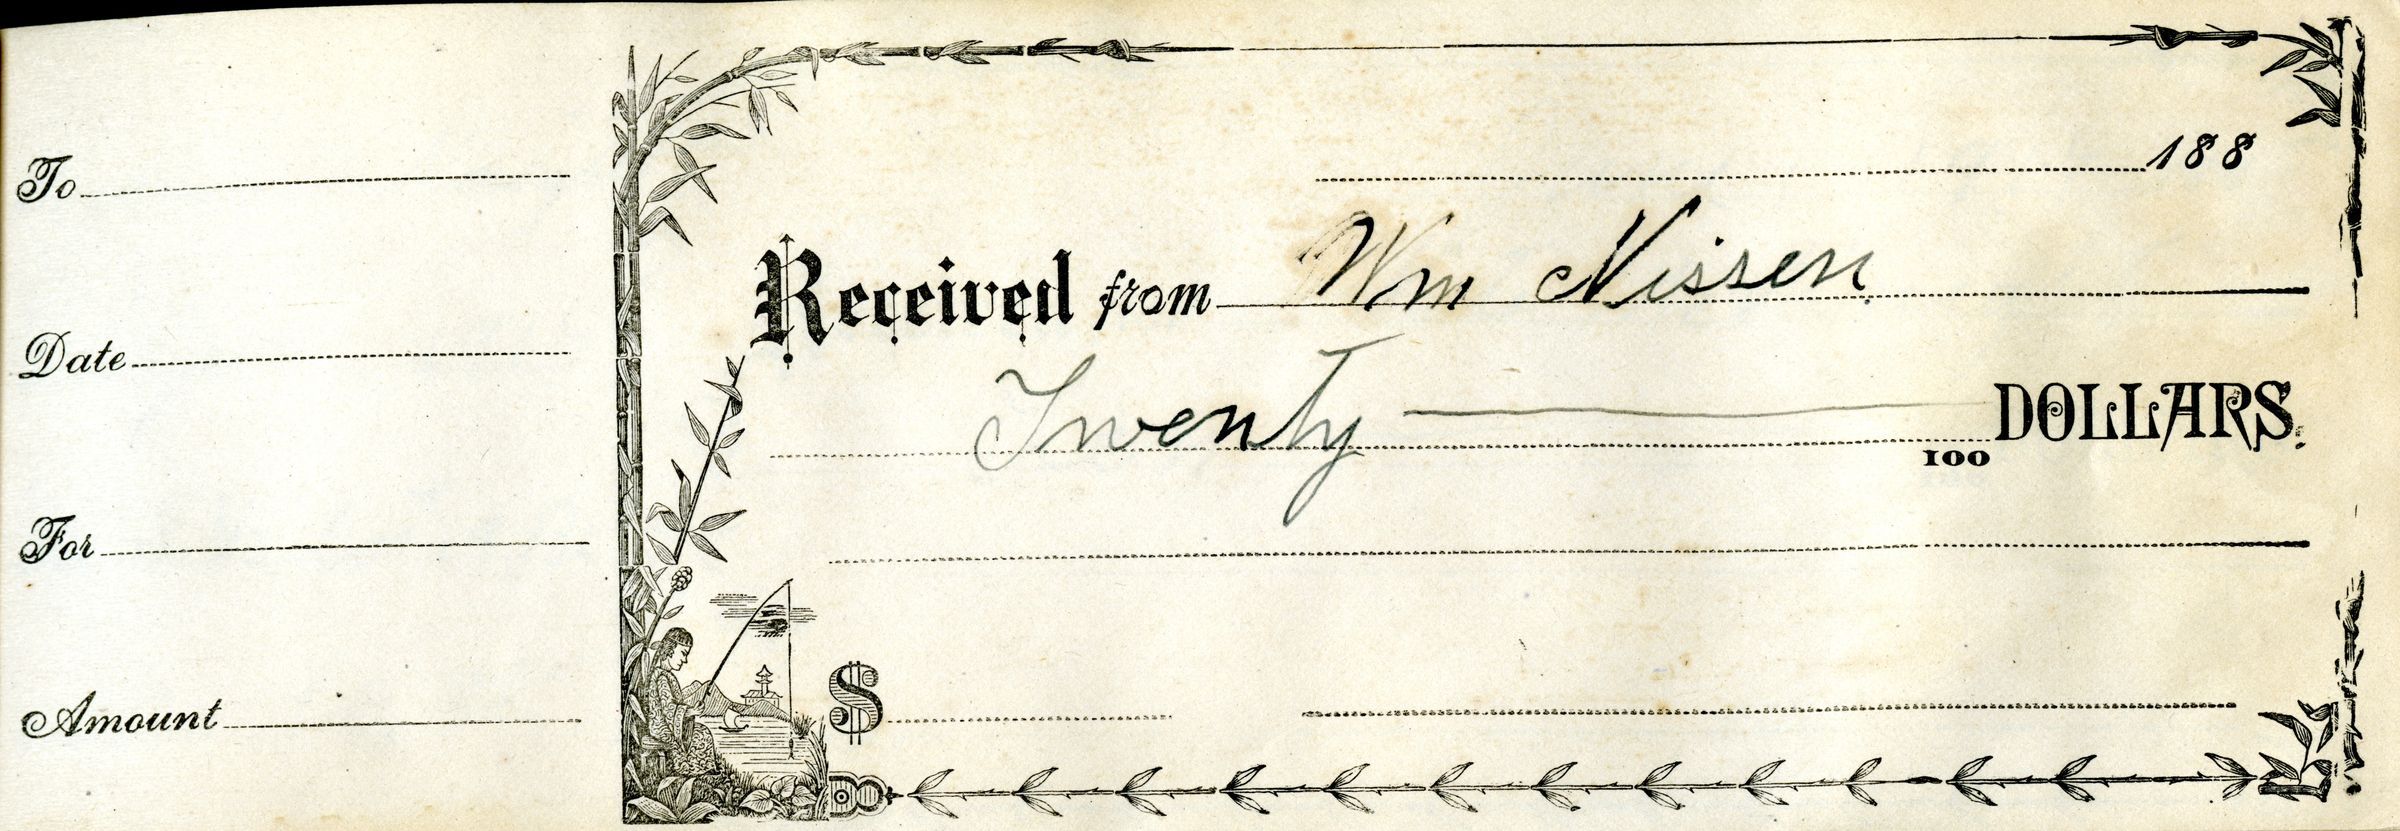 To
Date
For
Amount
188
Received from Wm Nissen
Twenty
100 DOLLARS.
$